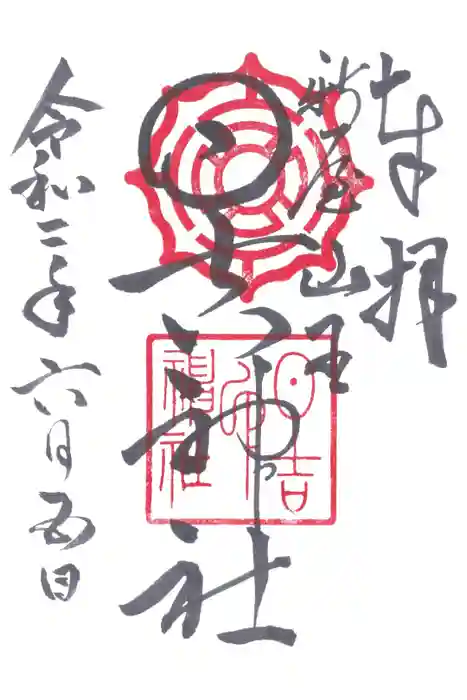 奉拝
新屋山王
日吉神社
令和二年六月五日
日吉